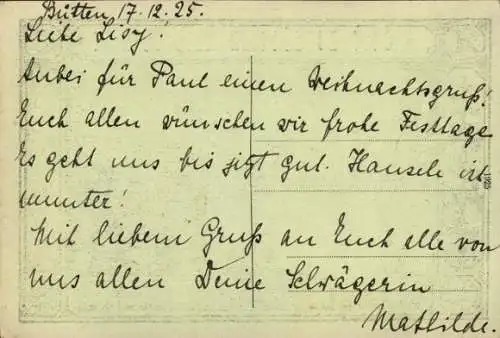 Bütten 17.12.25.
Liebe Lisy!
Anbei für Paul einen Weihnachtsgruß!
Euch allen wünschen wir frohe Festtage
Es geht uns bis jetzt gut. Hansele ist
munter!
Mit liebem Gruß an Euch alle von
uns allen Deine Schwägerin
Mathilde.